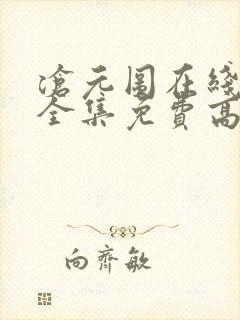 滄元图在綫
全集免费高
向齊敏